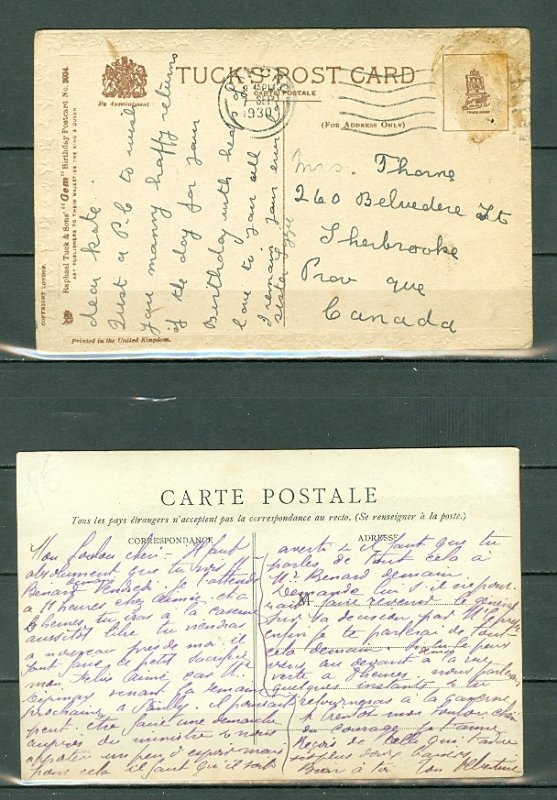 TUCK'S POST CARD
CARTE POSTALE
By Appointment
(FOR ADDRESS ONLY)
1930
Raphael Tuck & Sons' "Gem" Birthday Postcard No. 2034.
ART PUBLISHERS TO THEIR MAJESTIES THE KING & QUEEN
COPYRIGHT LONDON.
Dear Kate
Just a P.C to wish
you many happy returns
of the day for your
Birthday with heaps of
love to you all
I remain your ever
sister
Mrs. Thorne
260 Belvedere St
Sherbrooke
Prov que
Canada
Printed in the United Kingdom.
CARTE POSTALE
Tous les pays étrangers n'acceptent pas la correspondance au recto. (Se renseigner à la poste.)
CORRESPONDANCE
ADRESSE
M
Mon loulou chéri - Il faut
absolument que tu vois M
Benard Vendredi. Je t'attends
à 11 heures chez
heures, tu iras à la caserne
aussitôt libre tu viendras
à nouveau près de moi. il
faut faire le petit sacrifice
mon aimé, car M.
Epinay venant la semaine
prochaine à il pourrait
peut être faire une démarche
auprès du ministre & nous
apporter un peu d'espoir mais
pour cela il faut qu'il soit
averti & il faut que tu
parles de tout cela à
Mr Benard demain.
Demande lui s'il ne pour
rait faire revenir le général
sur sa décision par M le
enfin je te parlerai de tout
cela demain. tu peux
venir au devant à la
à heures. nous parlerons
quelques instants & tu
à la caserne
A bientôt mon loulou chéri
du courage je t'aime
Reçois de celle qui t'adore
ses plus doux baisers
Bien à toi ton